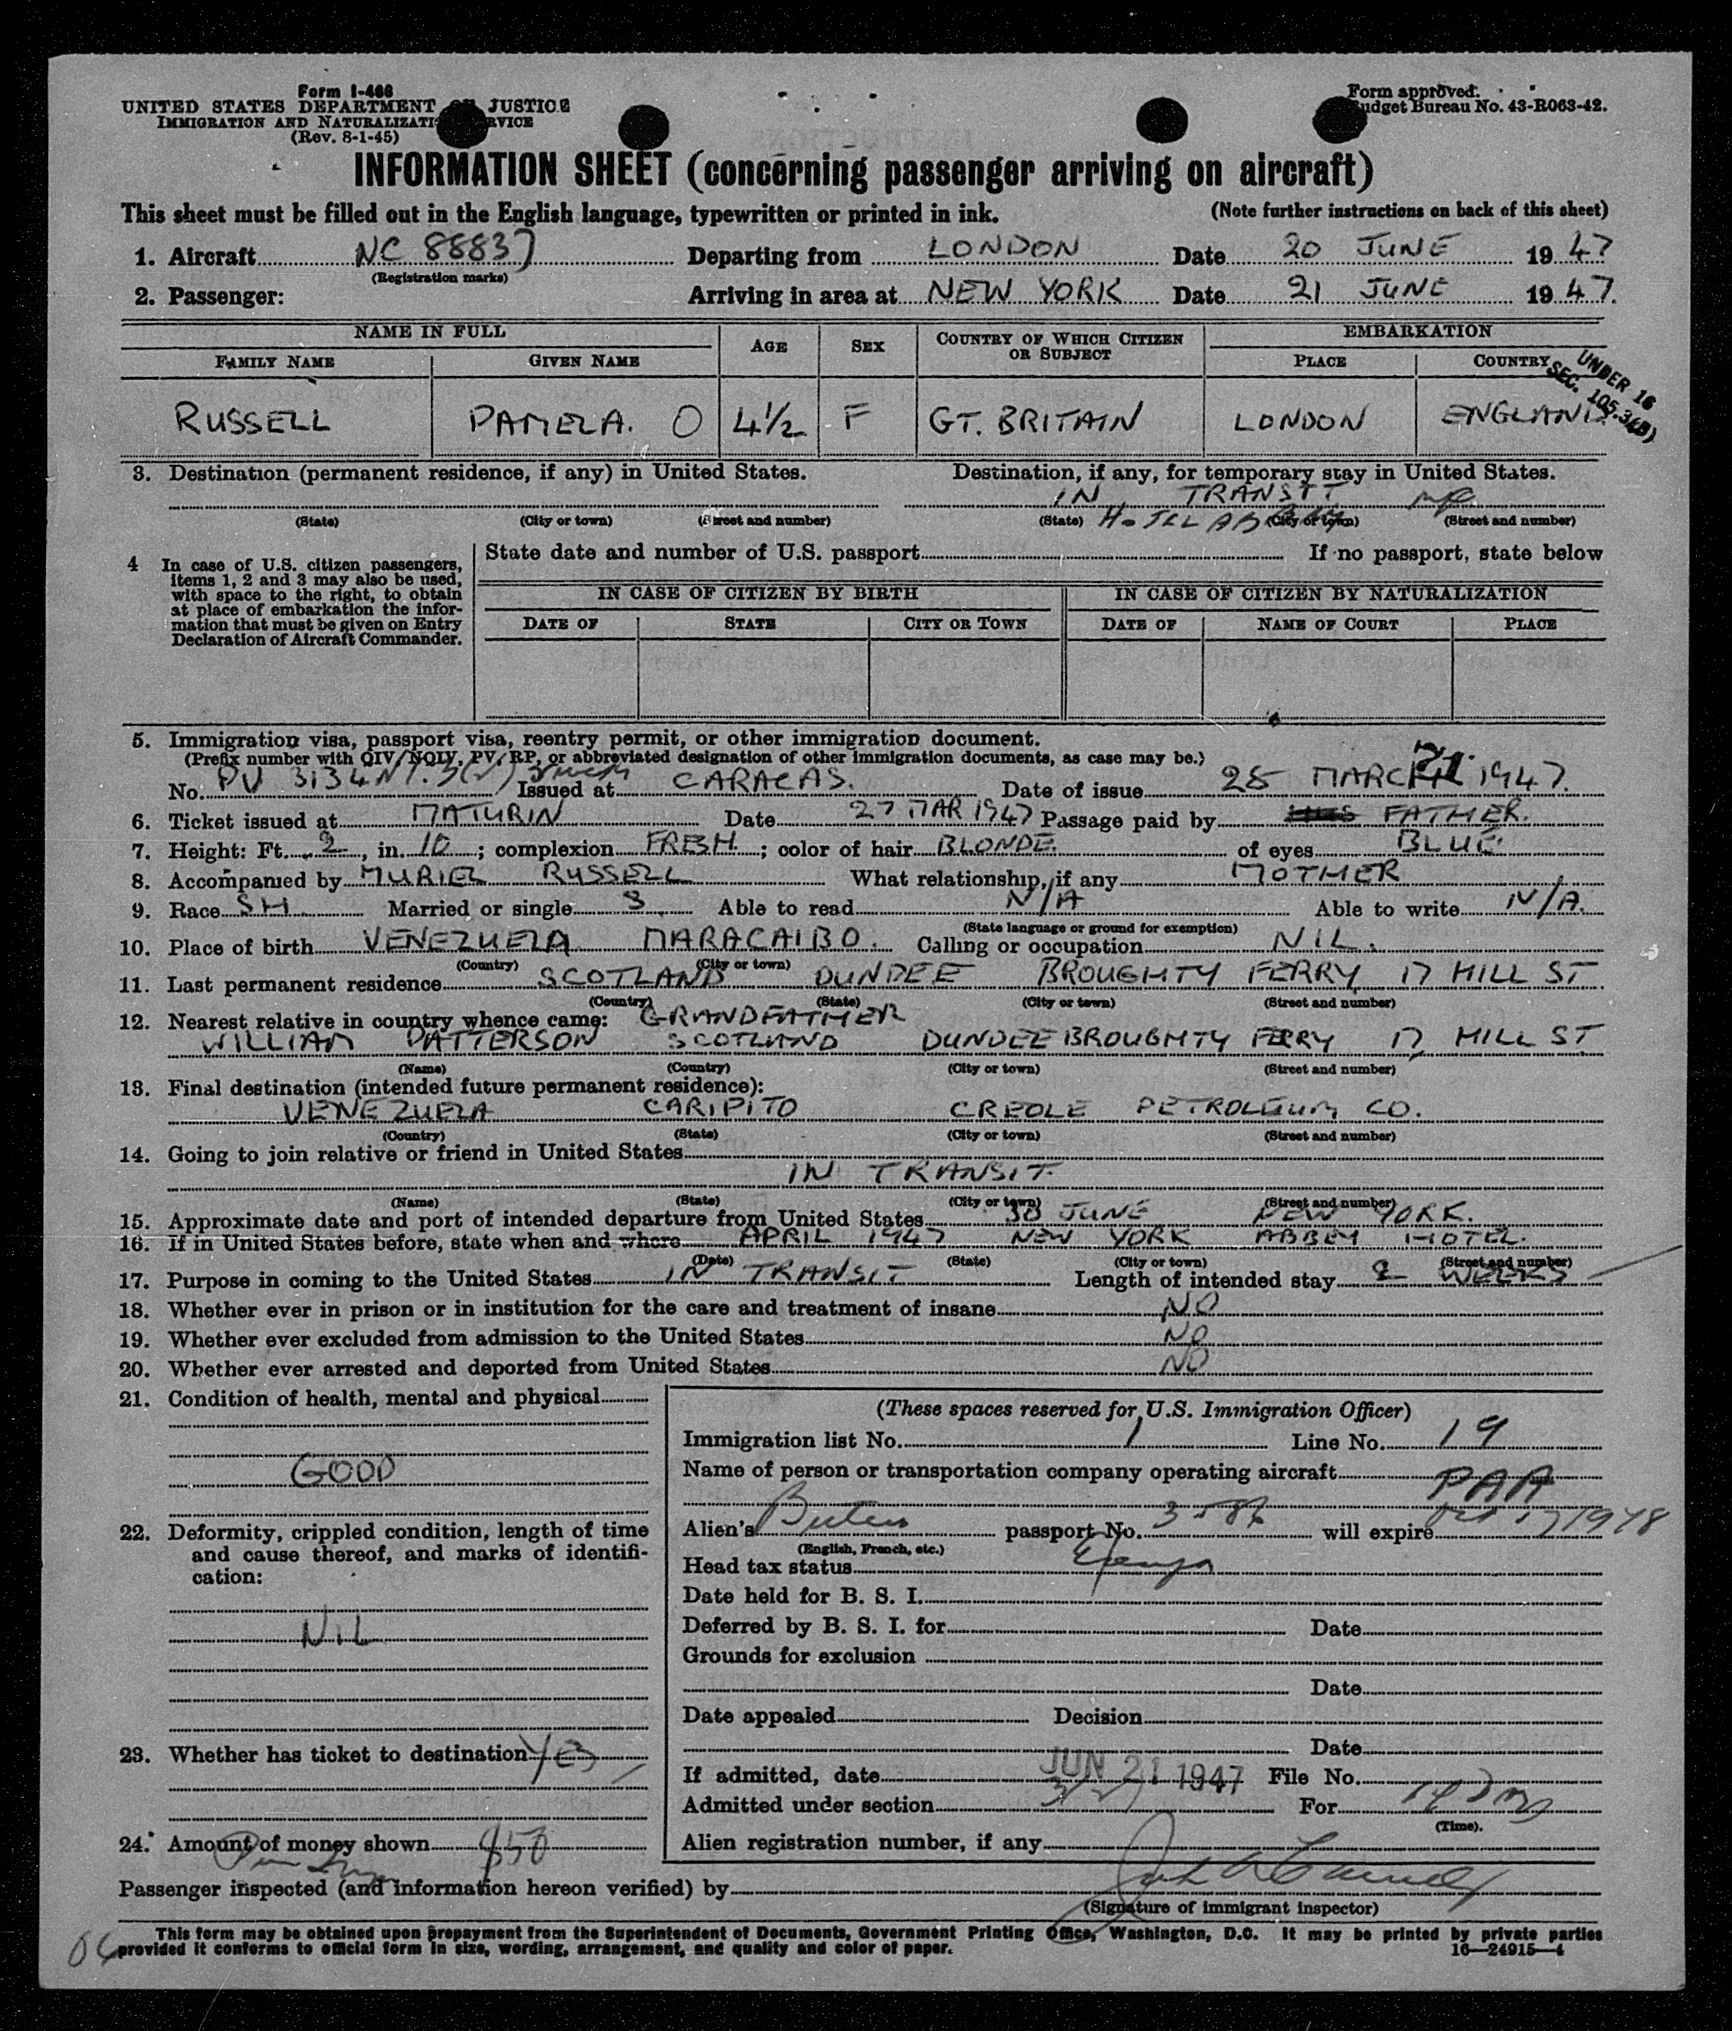 Form I-466
UNITED STATES DEPARTMENT JUSTICE
IMMIGRATION AND
(Rev. 8-1-45)
Form approved.
Budget Bureau No. 43-R063-42.
INFORMATION SHEET (concerning passenger arriving on aircraft)
This sheet must be filled out in the English language, typewritten or printed in ink. (Note further instructions on back of this sheet)
1. Aircraft NC 88837 Departing from LONDON Date 20 JUNE 1947
(Registration marks)
2. Passenger: Arriving in area at NEW YORK Date 21 JUNE 1947.
NAME IN FULL AGE SEX COUNTRY OF WHICH CITIZEN OR SUBJECT EMBARKATION
FAMILY NAME GIVEN NAME PLACE COUNTRY
UNDER 16
SEC. 105.3(B)
RUSSELL PAMELA. O 4½ F GT. BRITAIN LONDON ENGLAND
3. Destination (permanent residence, if any) in United States. Destination, if any, for temporary stay in United States.
IN TRANSIT
(State) (City or town) (Street and number) (State) HOTEL ABBEY (City or town) (Street and number)
4 In case of U.S. citizen passengers, items 1, 2 and 3 may also be used, with space to the right, to obtain at place of embarkation the information that must be given on Entry Declaration of Aircraft Commander.
State date and number of U.S. passport If no passport, state below
IN CASE OF CITIZEN BY BIRTH IN CASE OF CITIZEN BY NATURALIZATION
DATE OF STATE CITY OR TOWN DATE OF NAME OF COURT PLACE
5. Immigration visa, passport visa, reentry permit, or other immigration document.
(Prefix number with QIV, NQIV, PV, RP, or abbreviated designation of other immigration documents, as case may be.)
No. PV 3134 Issued at CARACAS. Date of issue 25 MARCH 1947.
6. Ticket issued at MATURIN Date 27 MAR 1947 Passage paid by FATHER.
7. Height: Ft. 2, in. 10; complexion FRESH; color of hair BLONDE of eyes BLUE
8. Accompanied by MURIEL RUSSELL What relationship, if any MOTHER
9. Race SH Married or single S. Able to read N/A Able to write N/A.
(State language or ground for exemption)
10. Place of birth VENEZUELA MARACAIBO. Calling or occupation NIL.
(Country) (City or town)
11. Last permanent residence SCOTLAND DUNDEE BROUGHTY FERRY 17 HILL ST
(Country) (State) (City or town) (Street and number)
12. Nearest relative in country whence came: GRANDFATHER
WILLIAM PATTERSON SCOTLAND DUNDEE BROUGHTY FERRY 17, HILL ST
(Name) (Country) (City or town) (Street and number)
13. Final destination (intended future permanent residence):
VENEZUELA CARIPITO CREOLE PETROLEUM CO.
(Country) (State) (City or town) (Street and number)
14. Going to join relative or friend in United States
IN TRANSIT
(Name) (State) (City or town) (Street and number)
15. Approximate date and port of intended departure from United States 30 JUNE NEW YORK.
16. If in United States before, state when and where APRIL 1947 NEW YORK ABBEY HOTEL.
(Date) (State) (City or town) (Street and number)
17. Purpose in coming to the United States IN TRANSIT Length of intended stay 2 WEEKS
18. Whether ever in prison or in institution for the care and treatment of insane NO
19. Whether ever excluded from admission to the United States NO
20. Whether ever arrested and deported from United States NO
21. Condition of health, mental and physical
GOOD
22. Deformity, crippled condition, length of time
and cause thereof, and marks of identifi-
cation:
NIL
23. Whether has ticket to destination YES
24. Amount of money shown $50
(These spaces reserved for U.S. Immigration Officer)
Immigration list No. 1 Line No. 19
Name of person or transportation company operating aircraft
PAA
Alien's passport No. will expire 1948
(English, French, etc.)
Head tax status
Date held for B. S. I.
Deferred by B. S. I. for Date
Grounds for exclusion
Date
Date appealed Decision
Date
If admitted, date JUN 21 1947 File No.
Admitted under section 3(2) For
(Time).
Alien registration number, if any
Passenger inspected (and information hereon verified) by
(Signature of immigrant inspector)
This form may be obtained upon prepayment from the Superintendent of Documents, Government Printing Office, Washington, D.C. It may be printed by private parties
provided it conforms to official form in size, wording, arrangement, and quality and color of paper. 16—24915-4